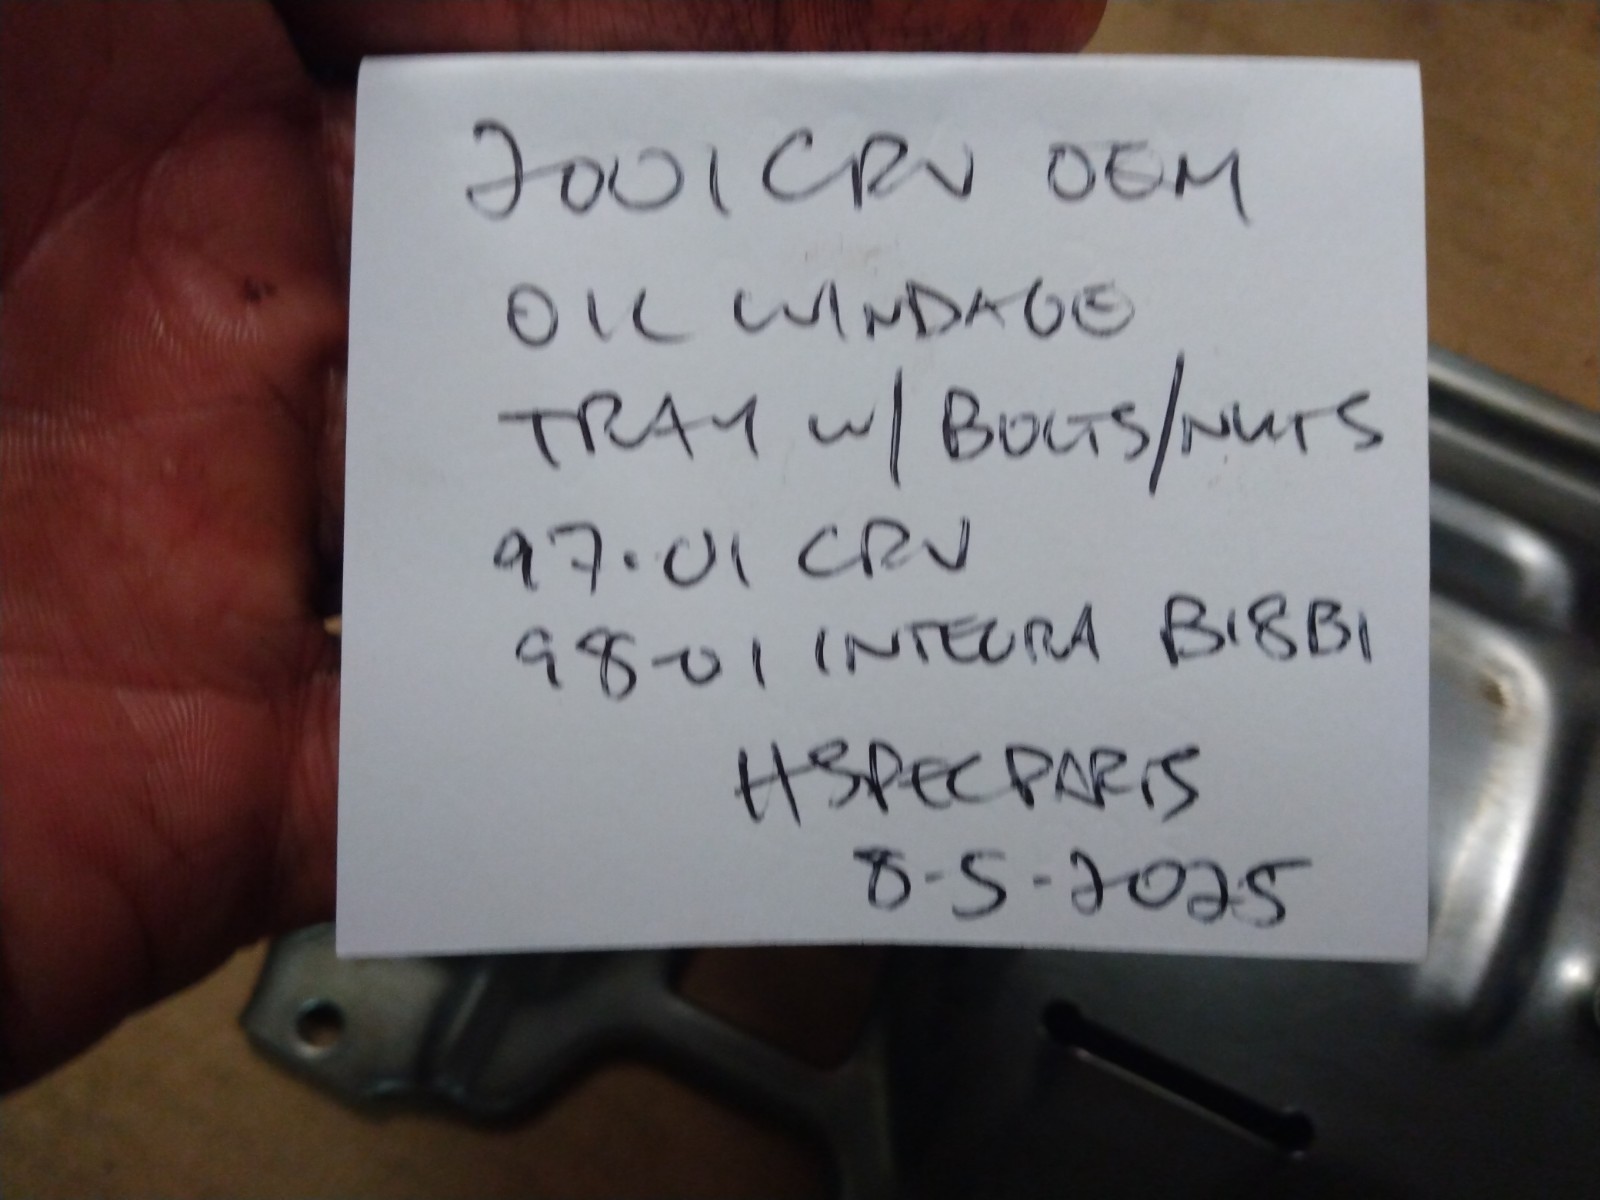 2001 CRV OEM
OIL WINDAGE
TRAY W/ BOLTS/NUTS
97-01 CRV
98-01 INTEGRA B18B1
HSPECPARTS
8-5-2025